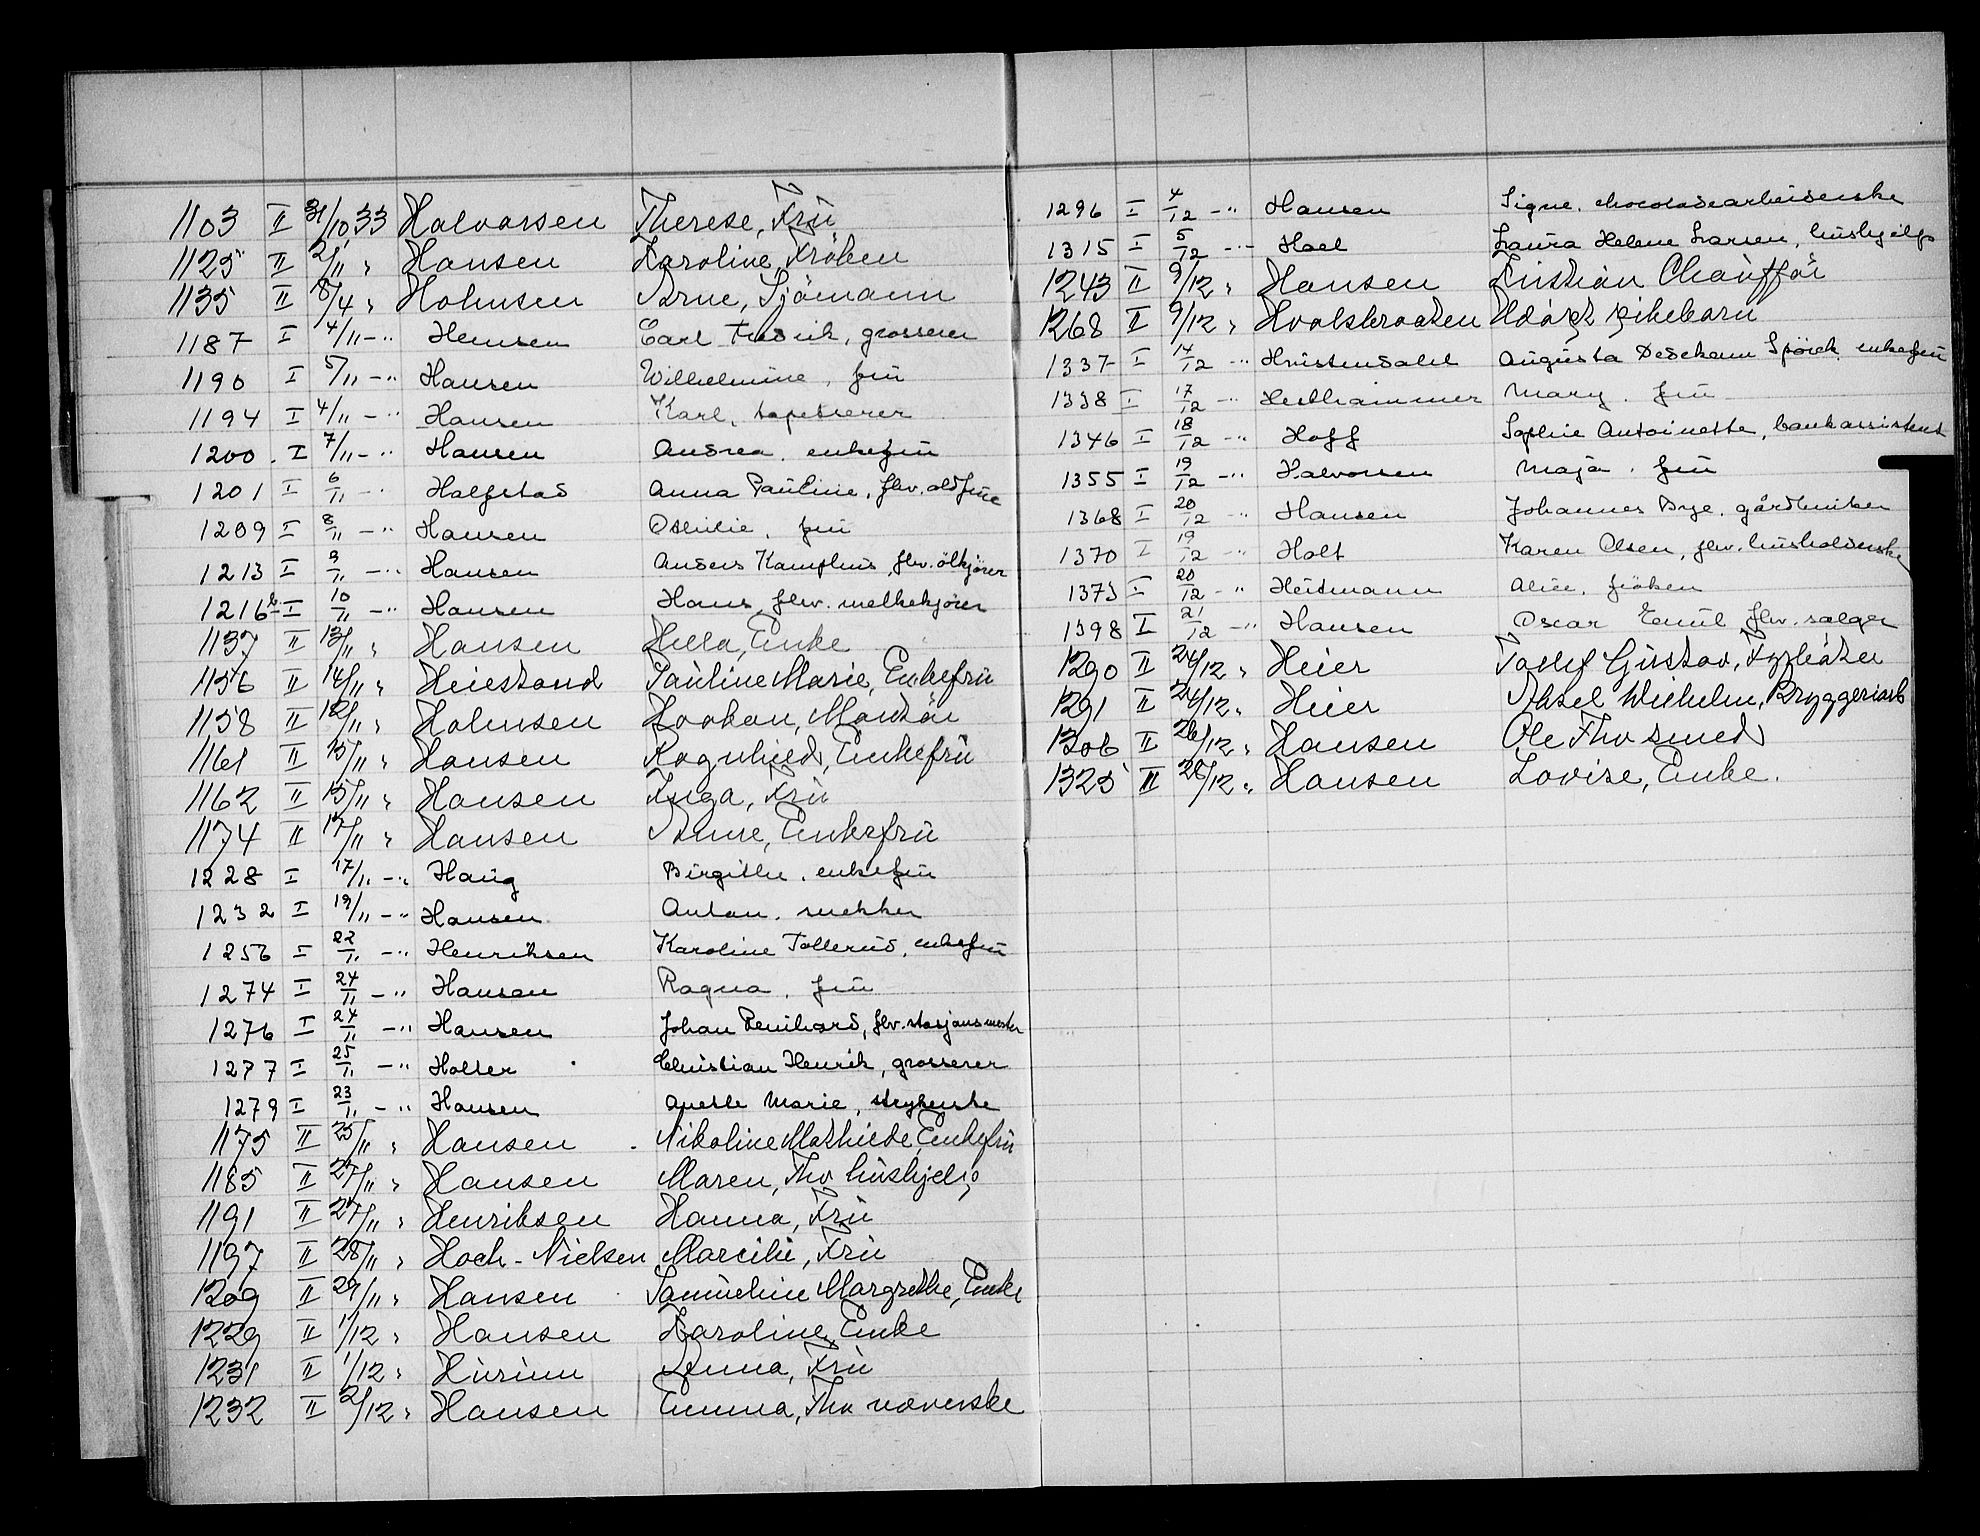 1103 II 31/10 33 Halvorsen Therese, Frü
1125 II 2/11 " Hansen Karoline, Fröken
1135 II 8/4 " Holmsen Arne, Sjömann
1187 I 4/11 -" Hemsen Carl Fredrik, grosserer
1190 I 5/11 -" Hansen Wilhelmine, frü
1194 I 4/11 -" Hansen Karl, tapetserer
1200 . I 7/11 -" Hansen Andrea, enkefrü
1201 I 6/11 -" Halfstad Anna Pauline, fhv. oldfrue
1209 I 8/11 -" Hansen Othilie, frü
1213 I 9/11 -" Hansen Anders Kamphus, fhv. ölkjörer
1216 b I 10/11 -" Hansen Hans, fhv. melkekjörer
1137 II 13/11 " Hansen Hella, Enke
1156 II 14/11 " Heiestand Pauline Marie, Enkefrü
1158 II 12/11 " Holmsen Haakon, Montör
1161 II 15/11 " Hansen Ragnhild, Enkefrü
1162 II 15/11 " Hansen Inga, Frü
1174 II 17/11 " Hansen Anne, Enkefrü
1228 I 17/11 -" Haüg Birgithe, enkefrü
1232 I 19/11 -" Hansen Anton, snekker
1256 I 22/11 -" Henriksen Karoline Tollerud, enkefrü
1274 I 24/11 -" Hansen Ragna, frü
1276 I 24/11 -" Hansen Johan Bernhard, fhv. stasjonsmester
1277 I 25/11 -" Holter Christian Henrik, grosserer
1279 I 23/11 -" Hansen Anette Marie, strykerske
1175 II 25/11 " Hansen Nikoline Mathilde, Enkefrü
1185 II 27/11 " Hansen Maren, Fhv hüshjelp
1191 II 27/11 " Henriksen Hanna, Frü
1197 II 28/11 " Hoch-Nielsen Marcilie, Frü
1209 II 29/11 " Hansen Samueline Margrethe, Enke
1229 II 1/12 " Hansen Karoline, Enke
1231 II 1/12 " Hürum Anna, Frü
1232 II 2/12 " Hansen Emma, Fhv væverske
1296 I 4/12 -" Hansen Signe, chocoladearbeiderske
1315 I 5/12 -" Hoel Laura Helene Larsen, hüshjelp
1243 II 9/12 " Hansen Kristian Chaufför
1268 II 9/12 " Hvalsbraaten Hdöpt pikebarn
1337 I 14/12 -" Hristendahl Augusta Desekam Spörck, enkefrü
1338 I 17/12 -" Hesthammer Mary, frü
1346 I 18/12 -" Hoff Sophie Antoinette, bankassistent
1355 I 19/12 -" Halvorsen Maja, frü
1368 I 20/12 -" Hansen Johannes Brye, gårdbruker
1370 I 19/12 -" Holt Karen Olsen, fhv. husholderske
1373 I 20/12 -" Heitmann Alice, fröken
1398 I 21/12 -" Hansen Oscar Emil fhv. selger
1290 II 24/12 " Heier Tollef Güstav, Fyrböter
1291 II 24/12 " Heier Aksel Wilhelm, Bryggeriarb
1306 II 26/12 " Hansen Ole Fhv smed
1325 II 28/12 " Hansen Lovise, Enke.